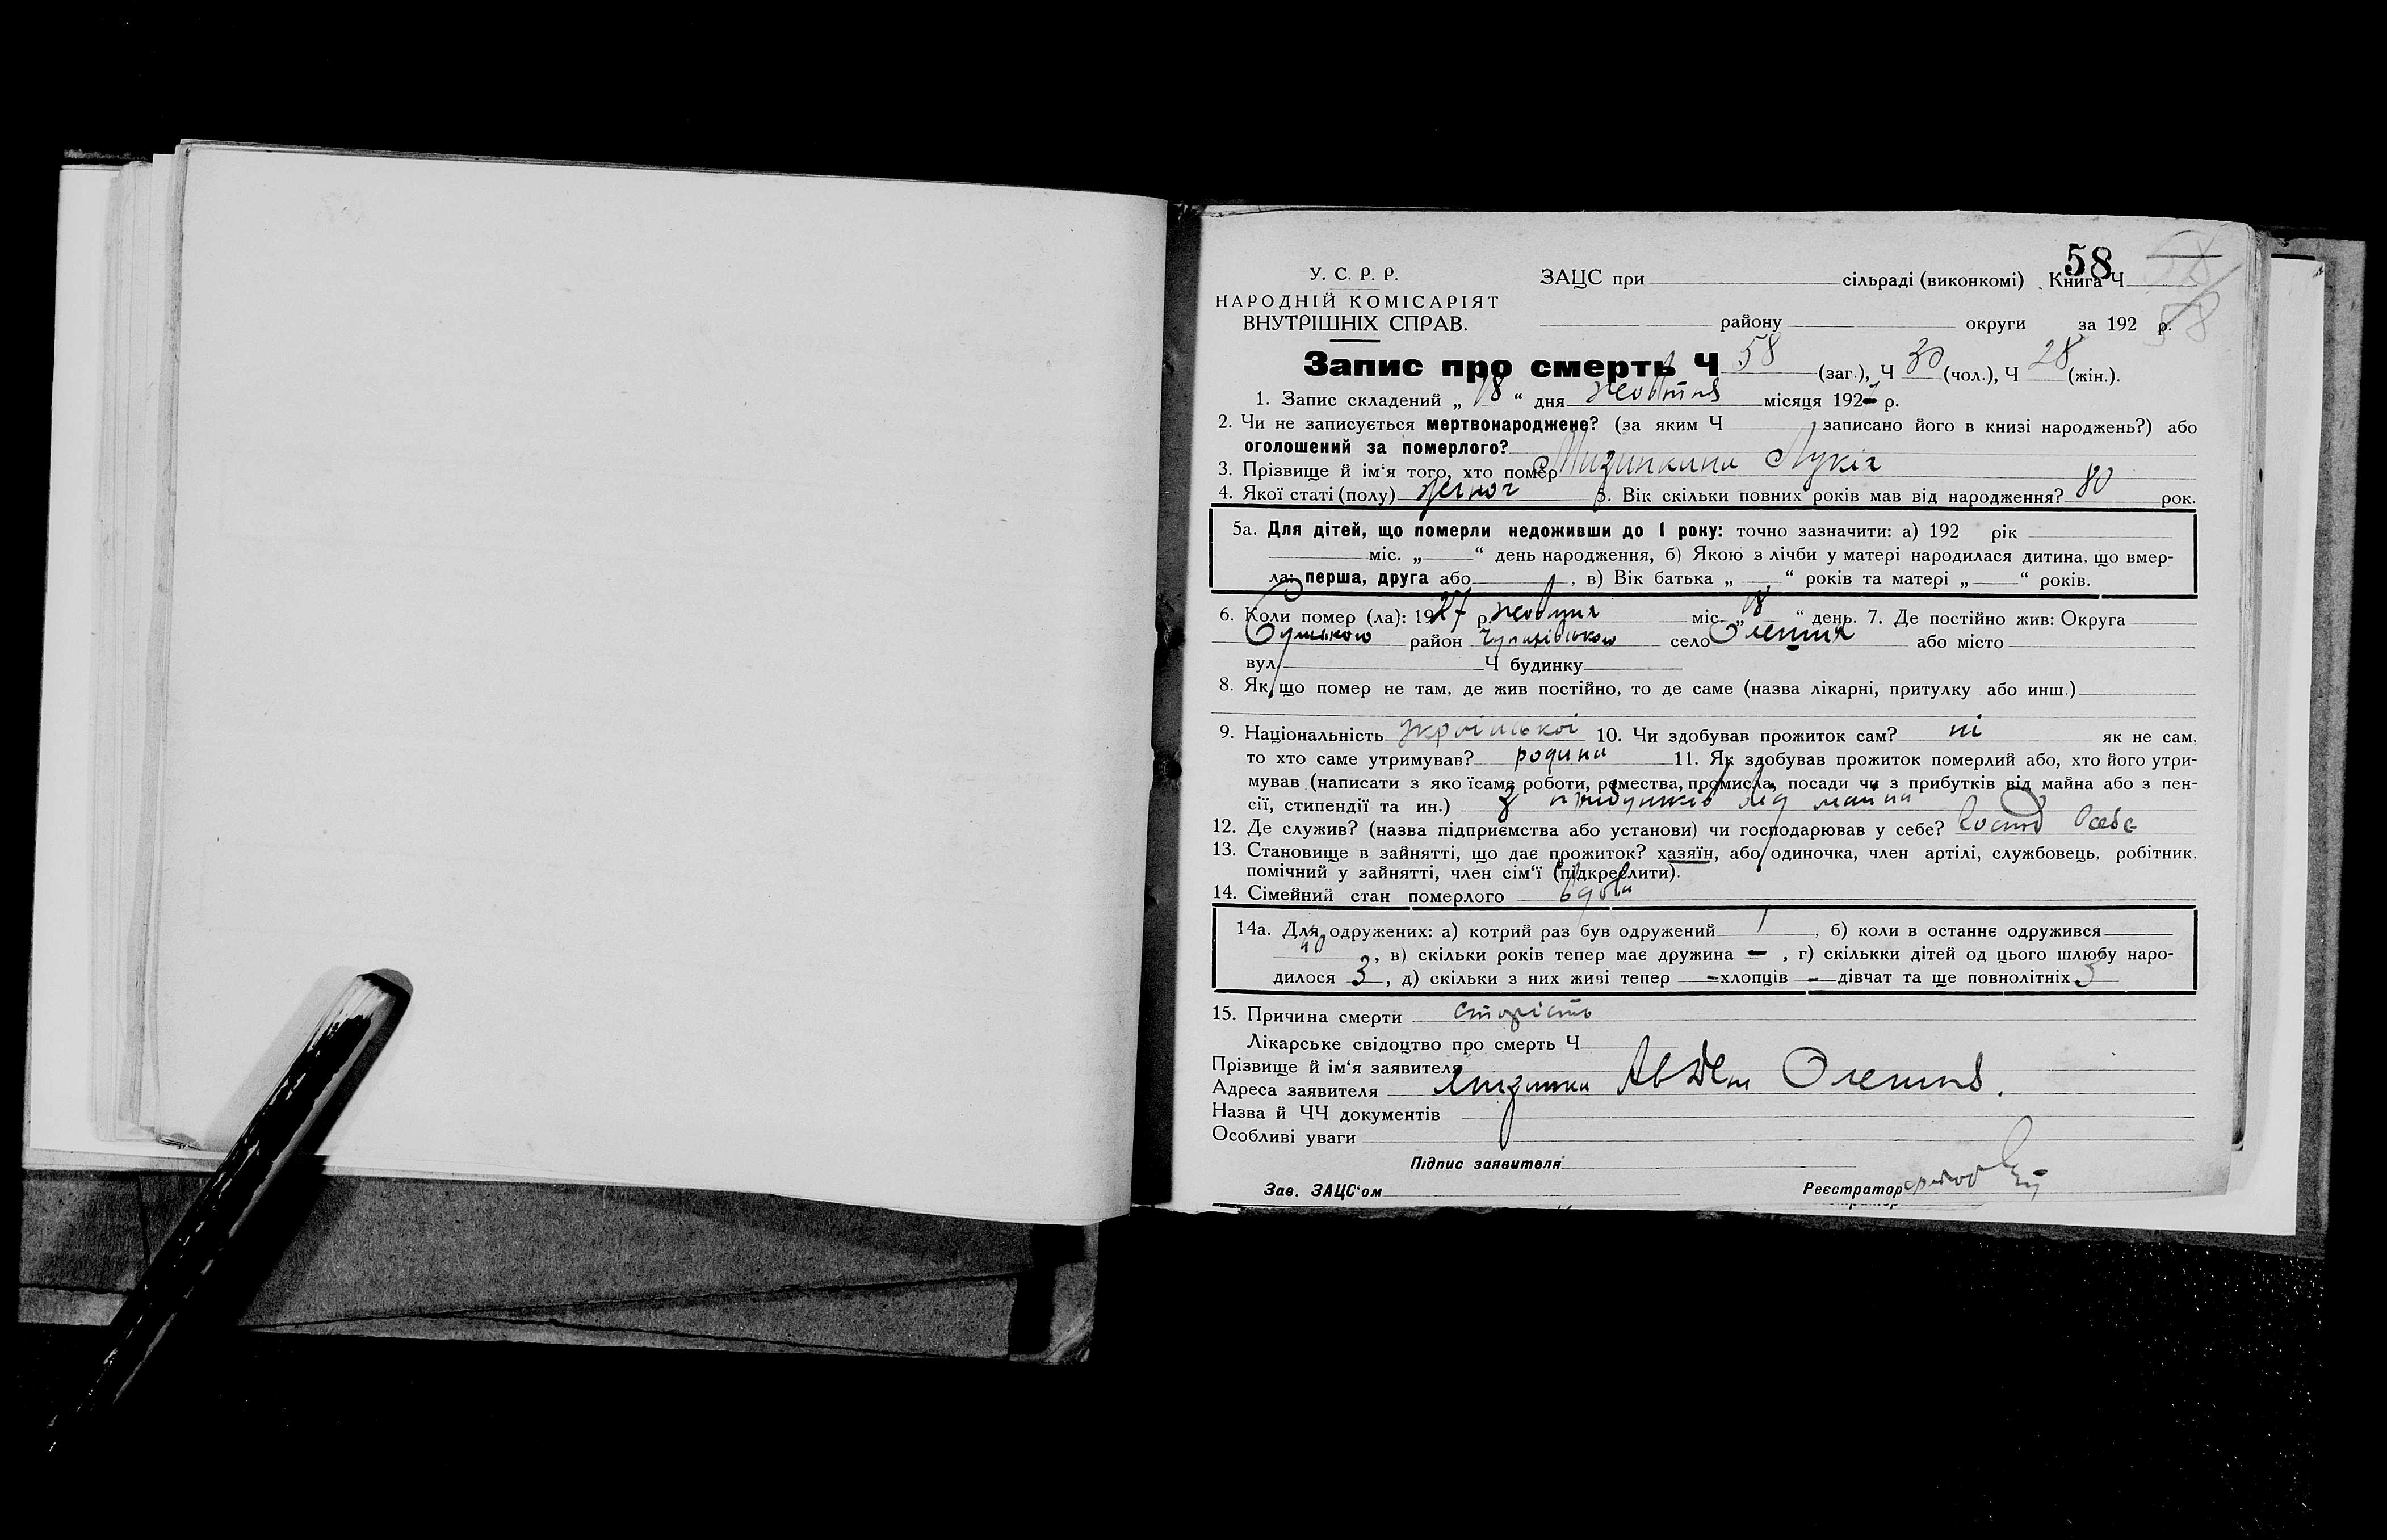 58
У. С. Р. Р. ЗАЦС при сільраді (виконкомі) Книга Ч 58
НАРОДНІЙ КОМІСАРІЯТ
ВНУТРІШНІХ СПРАВ. району округи за 192 р. 58
Запис про смерть Ч 58 (заг.), Ч 30 (чол.), Ч 28 (жін.).
1. Запис складений „ 18 “ дня жовтня місяця 192 р.
2. Чи не записується мертвонароджене? (за яким Ч записано його в книзі народжень?) або
оголошений за померлого?
3. Прізвище й ім‘я того, хто помер
4. Якої статі (полу) 5. Вік скільки повних років мав від народження? 80 рок.
5а. Для дітей, що померли недоживши до 1 року: точно зазначити: а) 192 рік
міс. „ “ день народження, б) Якою з лічби у матері народилася дитина, що вмер-
ла: перша, друга або , в) Вік батька „ “ років та матері „ “ років.
6. Коли помер (ла): 1927 р. жовтня міс. „ 18 “ день. 7. Де постійно жив: Округа
Сумською район село Олешня або місто
вул. Ч будинку
8. Як що помер не там, де жив постійно, то де саме (назва лікарні, притулку або инш.)
9. Національність української 10. Чи здобував прожиток сам? ні як не сам,
то хто саме утримував? родина 11. Як здобував прожиток померлий або, хто його утри-
мував (написати з яко їсаме роботи, ремества, промисла, посади чи з прибутків від майна або з пен-
сії, стипендії та ин.) з прибутків від майна
12. Де служив? (назва підприємства або установи) чи господарював у себе? Господ
13. Становище в зайнятті, що дає прожиток? хазяїн, або одиночка, член артілі, службовець, робітник,
помічний у зайнятті, член сім‘ї (підкреслити).
14. Сімейний стан померлого вдова
14а. Для одружених: а) котрий раз був одружений 1 , б) коли в останнє одружився
40 , в) скільки років тепер має дружина – , г) скількки дітей од цього шлюбу наро-
дилося 3 , д) скільки з них живі тепер – хлопців – дівчат та ще повнолітніх 3
15. Причина смерти старість
Лікарське свідоцтво про смерть Ч
Прізвище й ім‘я заявителя
Адреса заявителя Олешня.
Назва й ЧЧ документів
Особливі уваги
Підпис заявителя
Зав. ЗАЦС‘ом Реєстратор